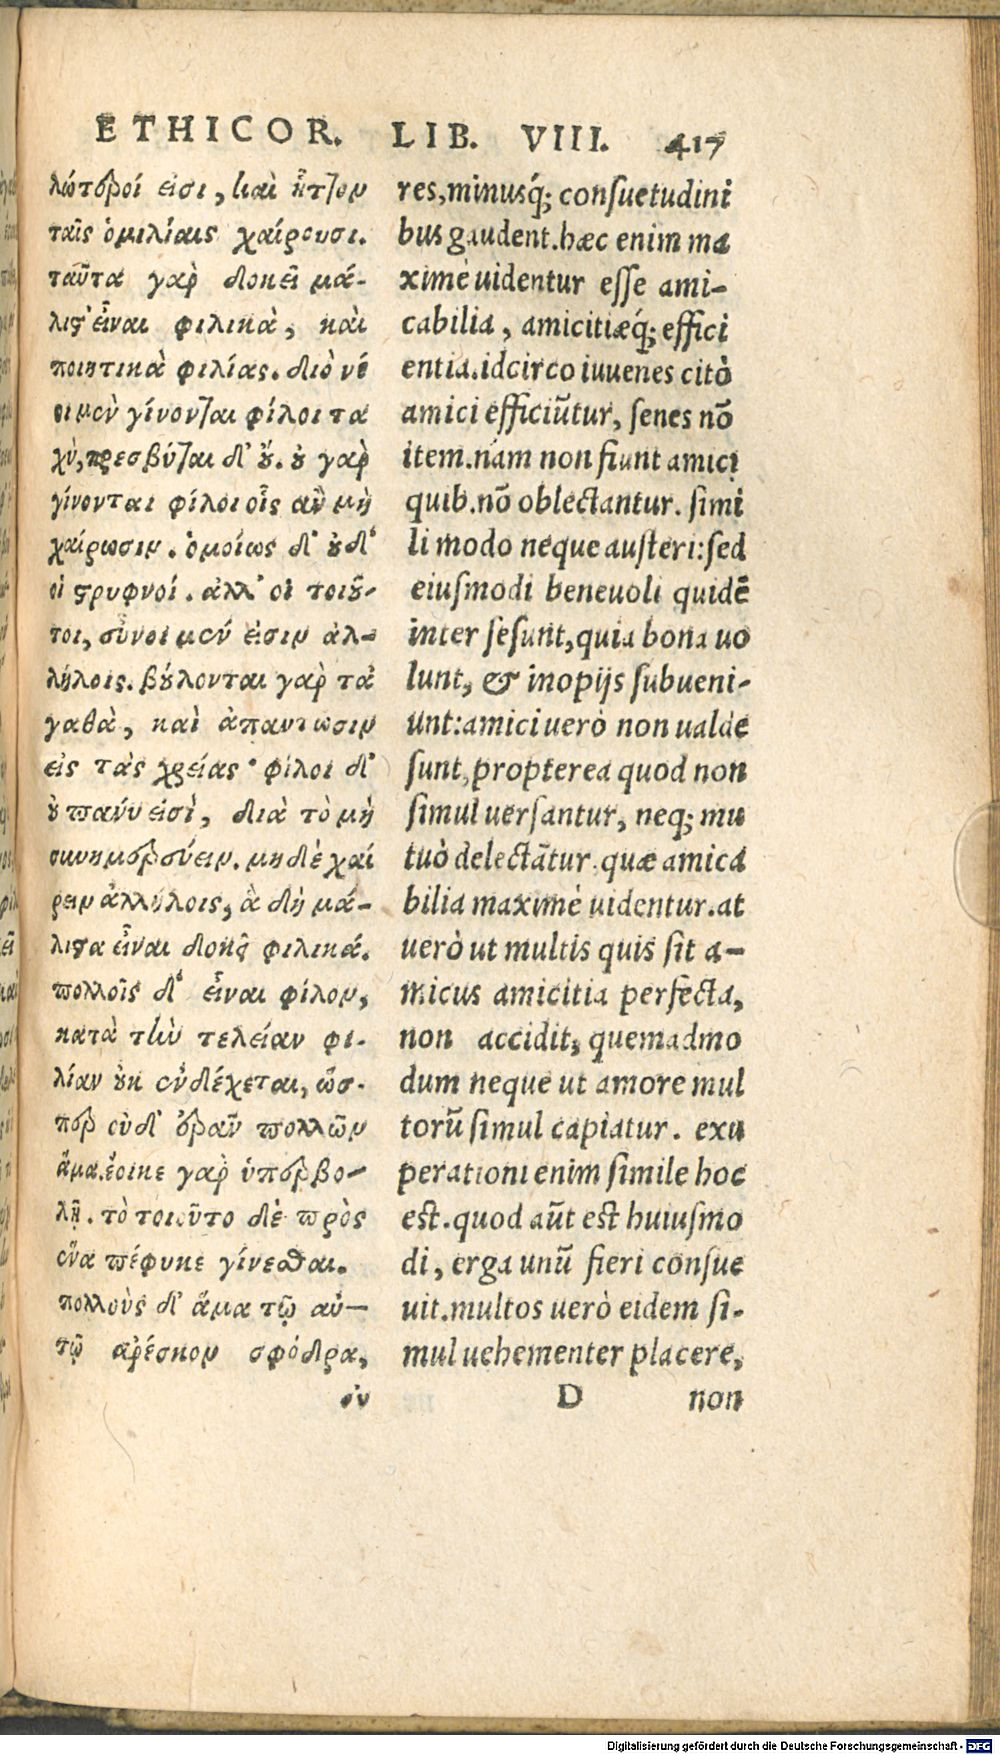 ETHICOR. LIB. VIII. 417
λώτεροί εἰσι, καὶ ἧττον
ταῖς ὁμιλίαις χαίρουσι.
ταῦτα γὰρ δοκεῖ μά-
λιστ' εἶναι φιλικὰ, καὶ
ποιητικὰ φιλίας. διὸ νέ
οι μὲν γίνονται φίλοι τα
χὺ, πρεσβύται δ' οὔ. οὐ γὰρ
γίνονται φίλοι οἷς ἂν μὴ
χαίρωσιν. ὁμοίως δ' οὐδ'
οἱ στρυφνοί. ἀλλ' οἱ τοιοῦ-
τοι, εὖνοι μέν εἰσιν ἀλ-
λήλοις. βούλονται γὰρ τἀ
γαθὰ, καὶ ἀπαντῶσιν
εἰς τὰς χρείας· φίλοι δ'
οὐ πάνυ εἰσὶ, διὰ τὸ μὴ
συνημερεύειν. μηδὲ χαί
ρειν ἀλλήλοις, ἃ δὴ μά-
λιστα εἶναι δοκεῖ φιλικά.
πολλοῖς δ' εἶναι φίλον,
κατὰ τὴν τελείαν φι-
λίαν οὐκ ἐνδέχεται, ὥσ-
περ οὐδ' ἐρᾶν πολλῶν
ἅμα. ἔοικε γὰρ ὑπερβο-
λῇ. τὸ τοιοῦτο δὲ πρὸς
ἕνα πέφυκε γίνεσθαι.
πολλοὺς δ' ἅμα τῷ αὐ-
τῷ ἀρέσκον σφόδρα,
οὐ
res, minusq́; consuetudini
bus gaudent. hæc enim ma
ximè uidentur esse ami-
cabilia, amicitiæq́; effici
entia. idcirco iuuenes citò
amici efficiũtur, senes nõ
item. nam non fiunt amici
quib. nõ oblectantur. simi
li modo neque austeri: sed
eiusmodi beneuoli quidẽ
inter se sunt, quia bona uo
lunt, & inopijs subueni-
unt: amici uerò non ualde
sunt, propterea quod non
simul uersantur, neq; mu
tuò delectãtur. quæ amica
bilia maximè uidentur. at
uerò ut multis quis sit a-
micus amicitia perfecta,
non accidit, quemadmo
dum neque ut amore mul
torũ simul capiatur. exu
perationi enim simile hoc
est. quod aũt est huiusmo
di, erga unũ fieri consue
uit. multos uerò eidem si-
mul uehementer placere,
D non
Digitalisierung gefördert durch die Deutsche Forschungsgemeinschaft - DFG